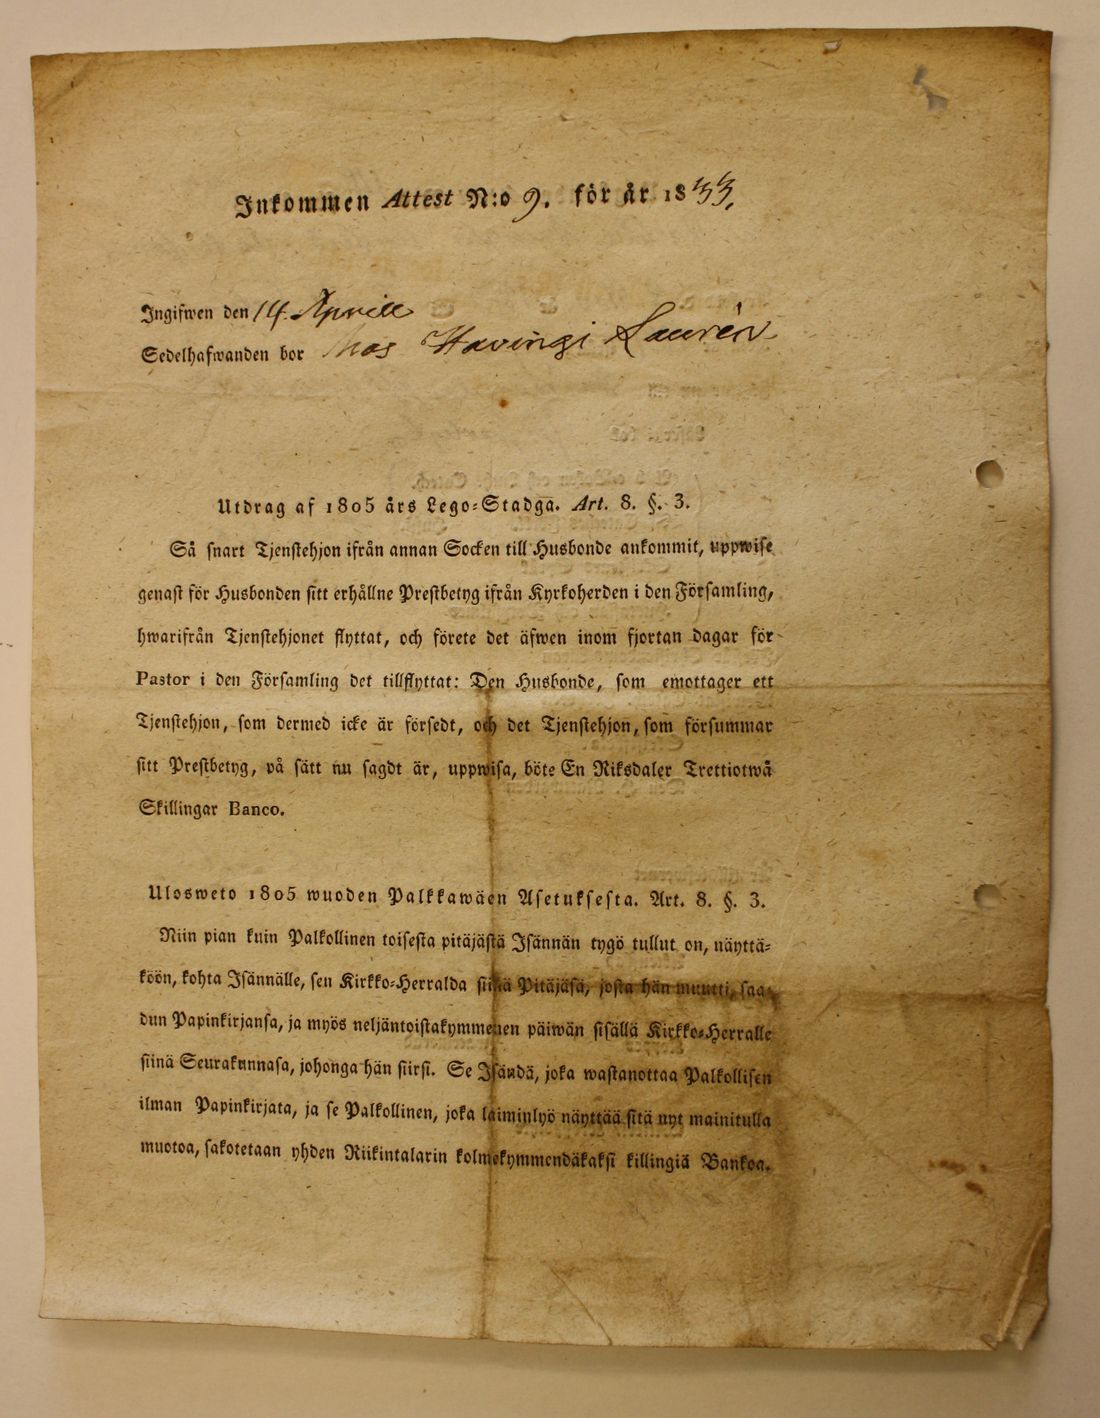 Inkommen Attest N:o 9. för år 1833.
Ingifwen den 14. Aprill
Sedelhafwanden bor hos Havingi Laurén
Utdrag af 1805 års Lego-Stadga. Art. 8. §. 3.
Så snart Tjenstehjon ifrån annan Socken till Husbonde ankommit, uppwise
genast för Husbonden sitt erhållne Prestbetyg ifrån Kyrkoherden i den Församling,
hwarifrån Tjenstehjonet flyttat, och förete det äfwen inom fjortan dagar för
Pastor i den Församling det tillflyttat: Den Husbonde, som emottager ett
Tjenstehjon, som dermed icke är försedt, och det Tjenstehjon, som försummar
sitt Prestbetyg, på sätt nu sagdt är, uppwisa, böte En Riksdaler Trettiotwå
Skillingar Banco.
Ulosweto 1805 wuoden Palkkawäen Asetuksesta. Art. 8. §. 3.
Niin pian kuin Palkollinen toisesta pitäjästä Isännän tygö tullut on, näyttä-
köön, kohta Isännälle, sen Kirkko-Herralda siinä Pitäjäsä, josta hän muutti, saa-
dun Papinkirjansa, ja myös neljäntoistakymmenen päiwän sisällä Kirkko-Herralle
siinä Seurakunnasa, johonga hän siirsi. Se Isändä, joka wastanottaa Palkollisen
ilman Papinkirjata, ja se Palkollinen, joka laiminlyö näyttää sitä nyt mainitulla
muotoa, sakotetaan yhden Riikintalarin kolmekymmendäkaksi killingiä Bankoa.